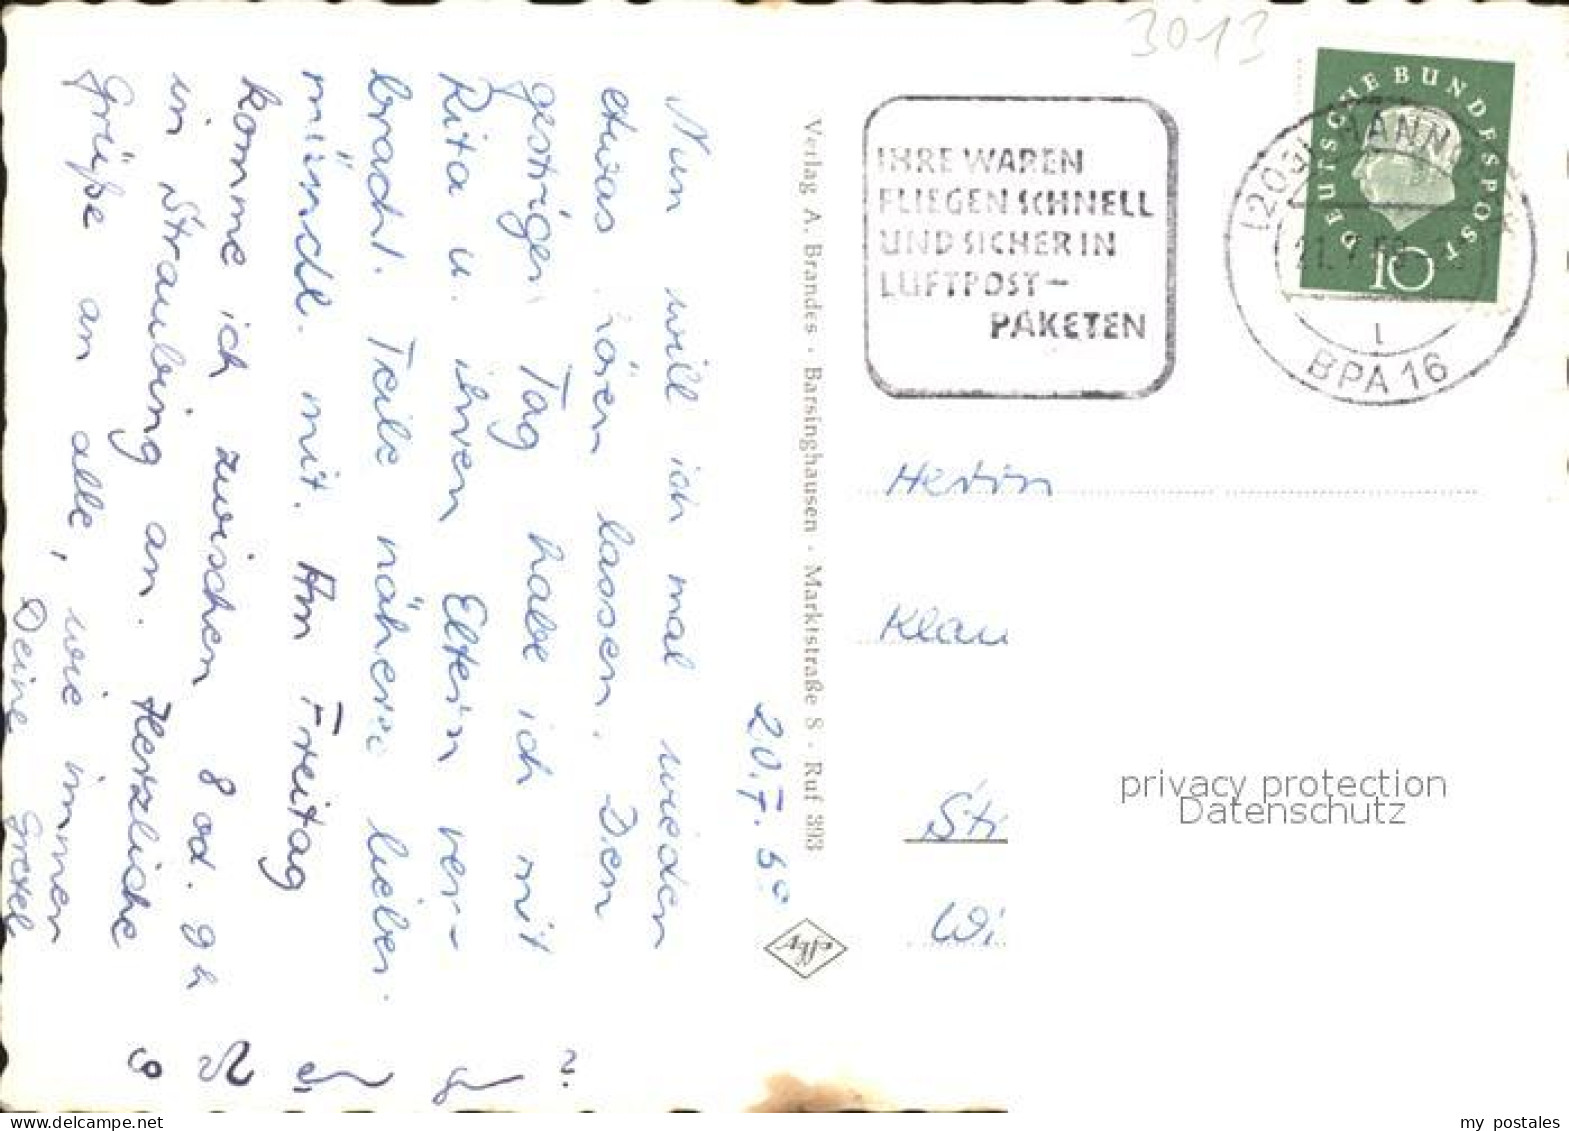 3013
DEUTSCHE BUNDESPOST
10
HANN
BPA 16
IHRE WAREN
FLIEGEN SCHNELL
UND SICHER IN
LUFTPOST-
PAKETEN
Verlag A. Brandes · Barsinghausen · Marktstraße 8 · Ruf 393
20.7.59
Nun will ich mal wieder
etwas hören lassen. Den
gestrigen Tag habe ich mit
Rita u. ihren Eltern ver-
bracht. Teile näheres lieber
mündl. mit. Am Freitag
komme ich zwischen 8 od. 9 h
in Straubing an. Herzliche
Grüße an alle, wie immer
Deine Gretel
?
Herrn
Klau
Str
Wi
privacy protection
Datenschutz
www.delcampe.net
my_postales